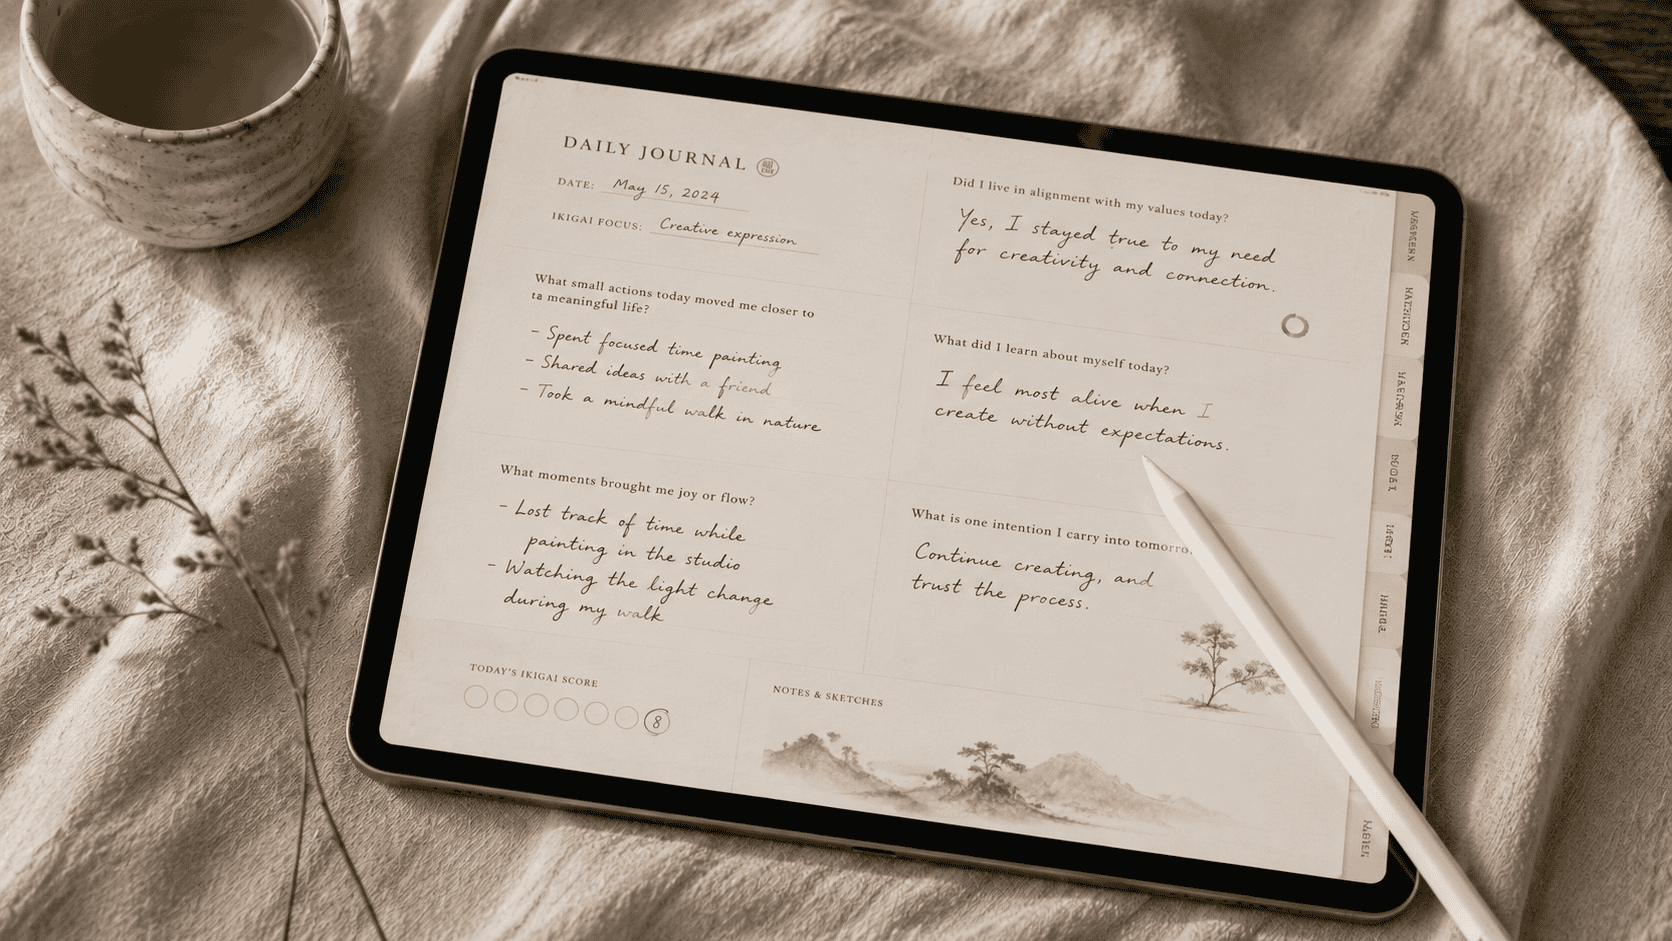 DAILY JOURNAL
DATE: May 15, 2024
IKIGAI FOCUS: Creative expression
What small actions today moved me closer to
ta meaningful life?
- Spent focused time painting
- Shared ideas with a friend
- Took a mindful walk in nature
What moments brought me joy or flow?
- Lost track of time while
painting in the studio
- Watching the light change
during my walk
TODAY'S IKIGAI SCORE
8
Did I live in alignment with my values today?
Yes, I stayed true to my need
for creativity and connection.
What did I learn about myself today?
I feel most alive when I
create without expectations.
What is one intention I carry into tomorro
Continue creating, and
trust the process.
NOTES & SKETCHES